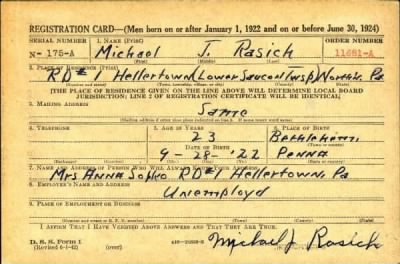 REGISTRATION CARD—(Men born on or after January 1, 1922 and on or before June 30, 1924)
SERIAL NUMBER 1. NAME (Print) ORDER NUMBER
N- 175-A Michael J. Rasich 11681-A
(First) (Middle) (Last)
2. PLACE OF RESIDENCE (Print)
RD#1 Hellertown (Lower Saucon Twsp) North. Pa
[THE PLACE OF RESIDENCE GIVEN ON THE LINE ABOVE WILL DETERMINE LOCAL BOARD
JURISDICTION; LINE 2 OF REGISTRATION CERTIFICATE WILL BE IDENTICAL]
3. MAILING ADDRESS
Same
[Mailing address if other than place indicated on line 2. If same insert word same]
4. TELEPHONE 5. AGE IN YEARS 6. PLACE OF BIRTH
23 Bethlehem
DATE OF BIRTH
9-28-'22 Penna
(Exchange) (Number) (Mo.) (Day) (Yr.) (State or country)
7. NAME AND ADDRESS OF PERSON WHO WILL ALWAYS KNOW YOUR ADDRESS
Mrs Anna Sopko RD#1 Hellertown, Pa
8. EMPLOYER'S NAME AND ADDRESS
Unemployd
9. PLACE OF EMPLOYMENT OR BUSINESS
(Number and street or R. F. D. number) (Town) (County) (State)
I AFFIRM THAT I HAVE VERIFIED ABOVE ANSWERS AND THAT THEY ARE TRUE.
D. S. S. Form 1
(Revised 6-1-42) (over) Michael J Rasich